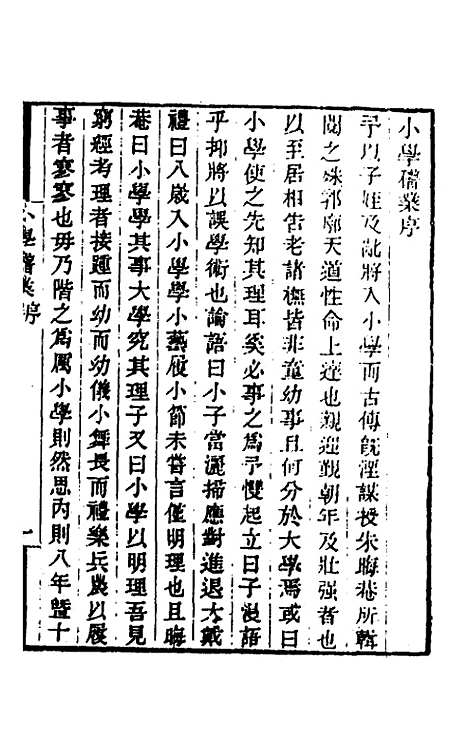 小學稽業序
予以子姪及齔將入小學而古傳旣湮謀授朱晦菴所輯
閱之殊郭廓天道性命上達也親迎覲朝年及壯强者也
以至居相告老諸樵皆非童幼事且何分於大學焉或曰
小學使之先知其理耳奚必事之爲予戄起立曰子漫語
乎抑將以誤學術也論語曰小子當灑掃應對進退大戴
禮曰八歲入小學學小藝履小節未嘗言僅明理也且晦
菴曰小學學其事大學究其理子又曰小學以明理吾見
窮經考理者接踵而幼而幼儀小舞長而禮樂兵農以履
事者寥寥也毋乃階之爲厲小學則然思內則八年曁十
小學稽業序
一